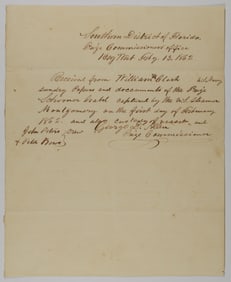 Southern District of Florida
Prize Commissioners office
Key West Feby. 13. 1862
Received from William Clark
sundry papers and documents of the Prize
Schooner Isabel captured by the U.S. Steamer
Montgomery on the first day of February
1862. and also custody of vessel, and
John
George D. Allen
Prize Commissioner